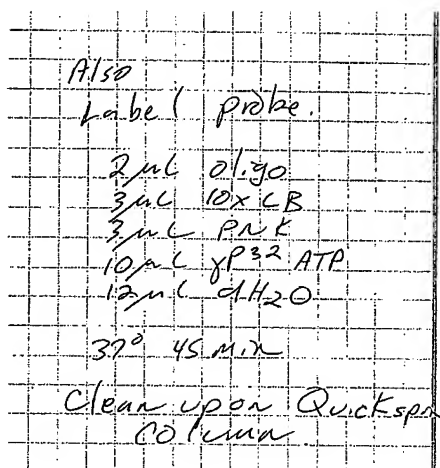 Also
Label probe.
2 μL oligo
3 μL 10x LB
3 μL PNK
10 μL γP³² ATP
12 μL dH₂O
37° 45 min
Clean up on Quickspin
column